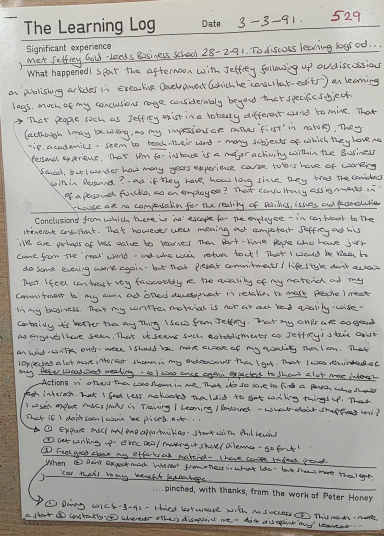 The Learning Log Date 3-3-91. 529
Significant experience
Met Jeffrey Gold - Leeds Business School 28-2-91. To discuss learning logs od...
What happened! Spent the afternoon with Jeffrey following up our discussions
on publishing articles in Executive Development (which he 'consultant-edits') on learning
logs. Much of my conclusions range considerably beyond that specific subject.
→ That people such as Jeffrey exist in a totally different world to mine. That
(although I may be wrong, as my impressions are rather 'first' in nature). They
- ie. academics - seem to teach their word - many subjects of which they have no
personal experience. That IPM for instance is a major activity within the Business
School, but I wonder how many years experience course tutors have of working
within Personnel? And if they have, how long since they trod the corridors
of a personnel function, as an employee? That consultancy assignments in-
house are no compensation for the reality of politics, issues and personalities
Conclusions from which there is no escape for the employee - in contrast to the
itinerant consultant. That however well meaning and competent Jeffrey and his
'ilk' are perhaps of less value to learners than part-time people who have just
come from the 'real' world - and who will return to it! That I would be keen to
do some evening work again - but that present commitments / lifestyle don't allow
That I feel I can 'test' very favourably re the quality of my material and my
commitment to my own and others development in relation to most people I meet
in my business. That my written material is not at all bad quality-wise -
certainly it's better than anything I saw from Jeffrey. That my OHPs are as good
as any I have seen. That it seems such establishments as Jeffrey's exist
hand-with-one until I should be more aware of my quality than I am. That
I expected a lot more interest shown in my endeavours than I got. That I was reminded of
my
Actions in others than was shown in me. That
interest. That I feel less motivated than I did to get writing things up. That
I will explore MSc's/MA's in Training / Learning / Personnel - what about Sheffield Uni?
That if I don't soon I will be priced out...
→ ① Explore MSc/MA/PhD opportunities. Start with Phil Lewis
② Get writing up - Exec Dev/making it stick/dilemma - go for it!
③ Feel good about my efforts and material - I have cause to feel proud.
When ④ Don't expect much interest from others in what I do - but show more than I get.
'cos that's to my benefit
....pinched, with thanks, from the work of Peter Honey
① During W/C 4-3-91 - I tried last week with no success ② This month - make
a start ③ Constantly ④ Whenever others disappoint me -